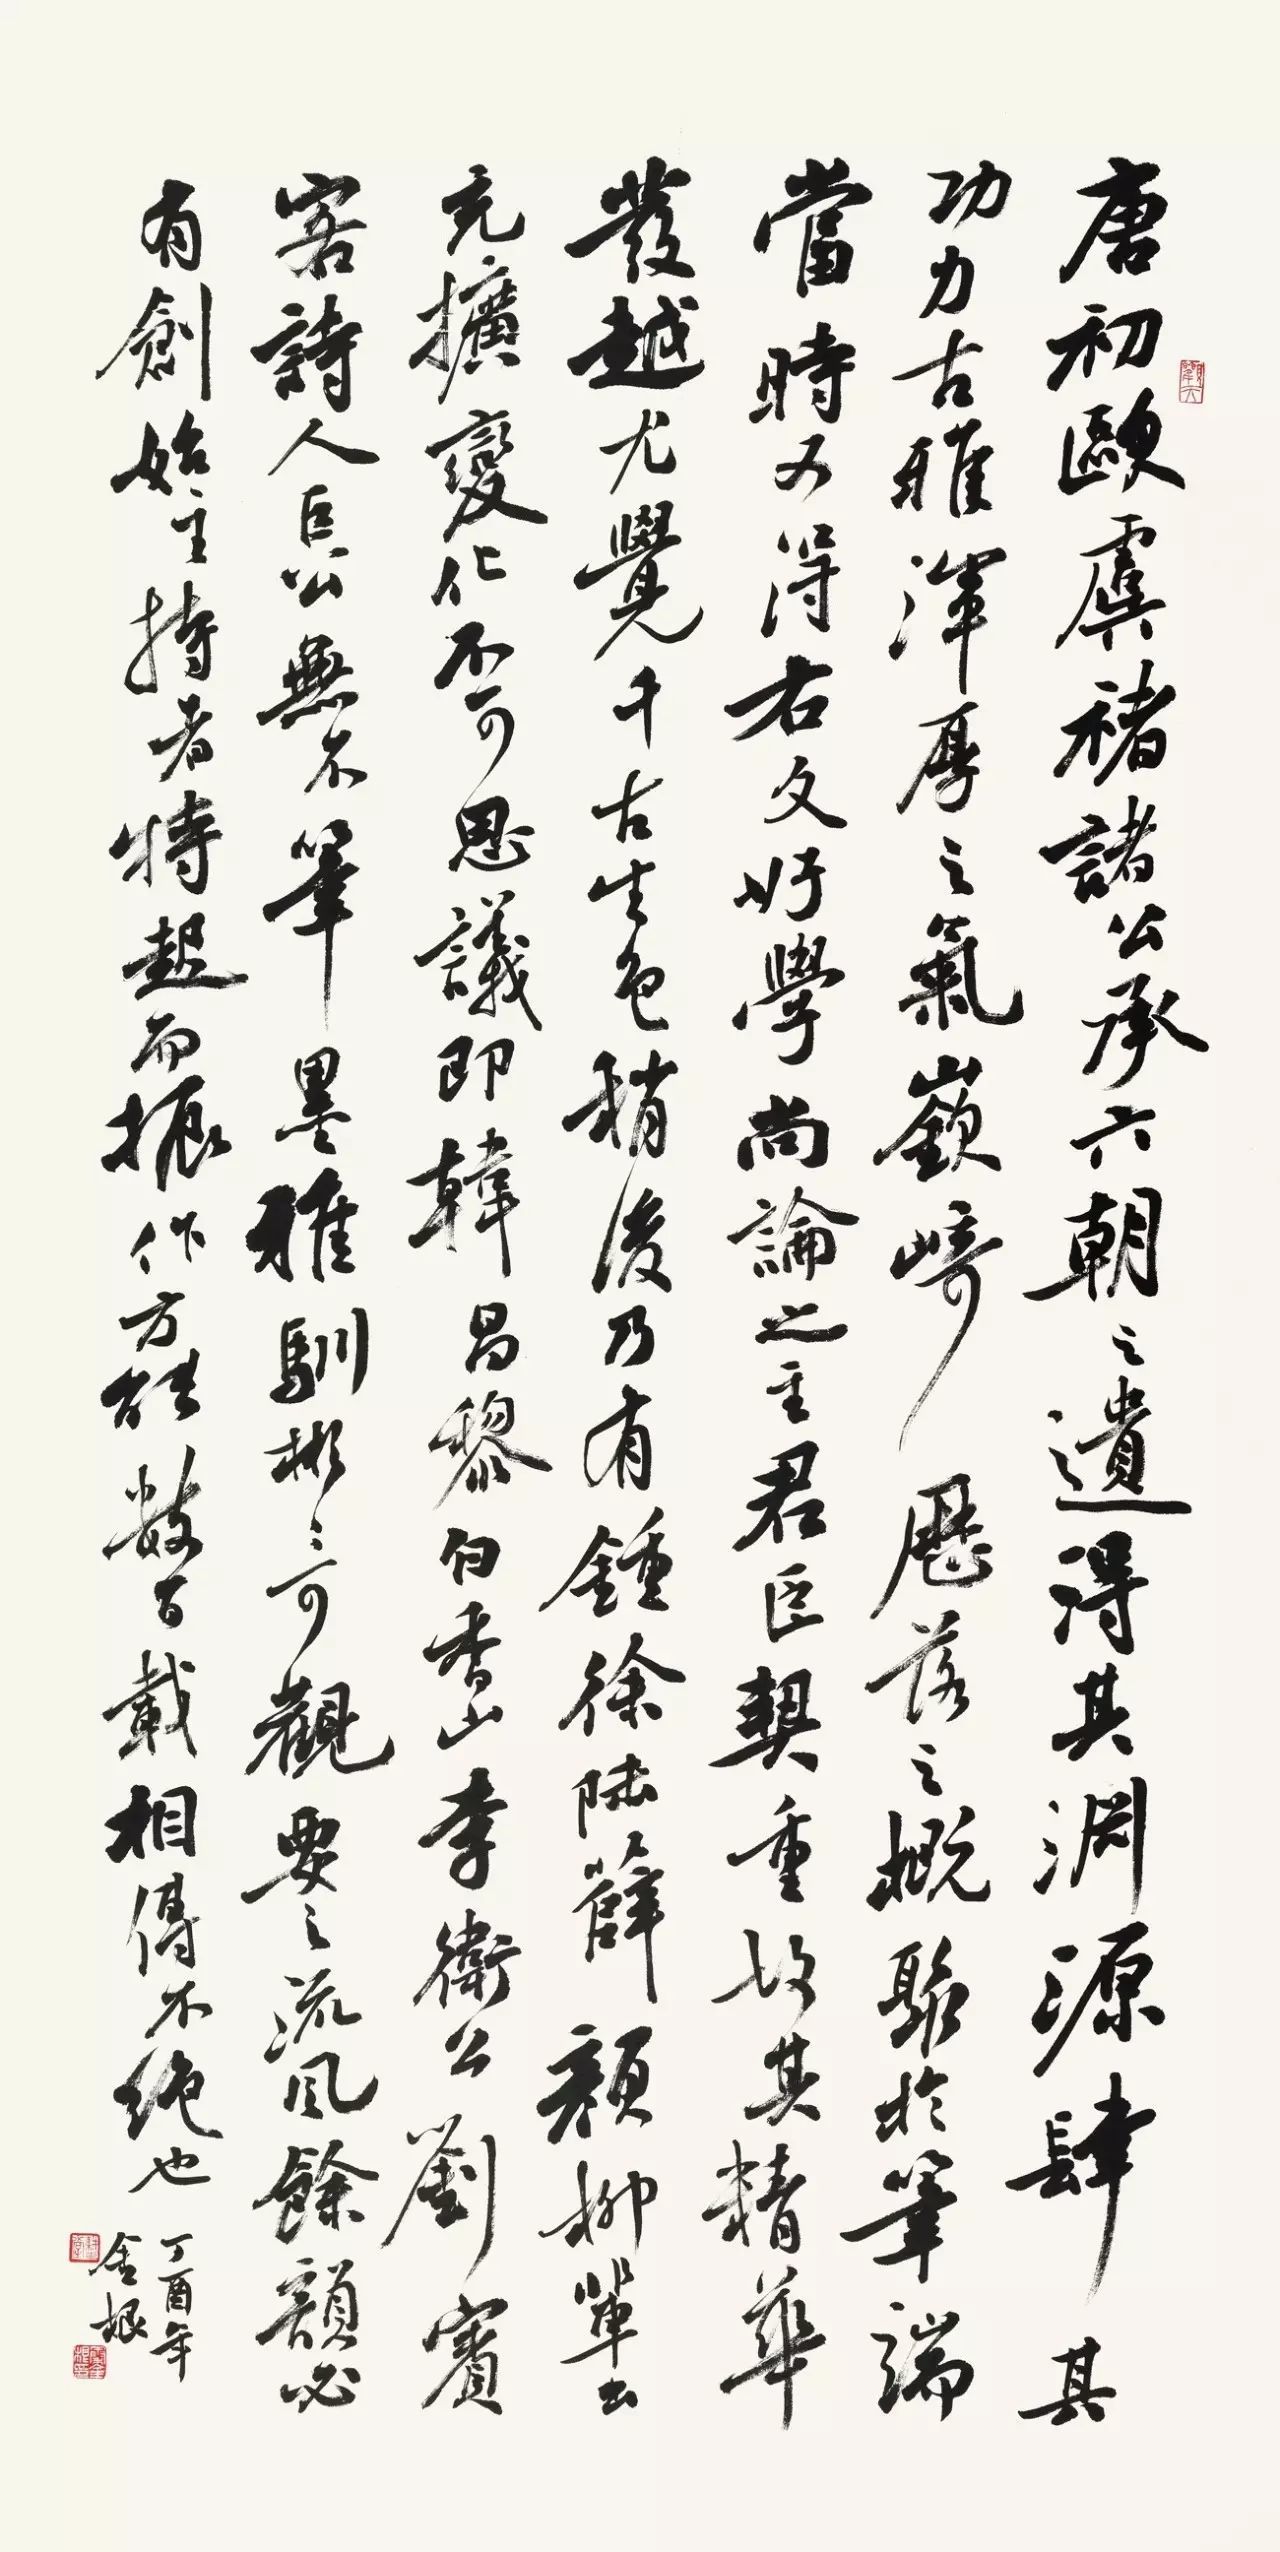 唐初歐虞褚諸公承六朝之遺得其淵源肆其
功力古雅渾厚之氣嶔崎歷落之概聚於筆端
當時又得右文好學尚論之主君臣契重故其精華
發越尤覺千古生色稍後乃有鍾徐陸薛顏柳輩出
充擴變化不可思議即韓昌黎白香山李衛公劉賓
客詩人巨公無不筆墨雅馴彬彬可觀要之流風餘韻必
有創始主持者特起而振作方能數百載相傳不絕也
丁酉年
金根